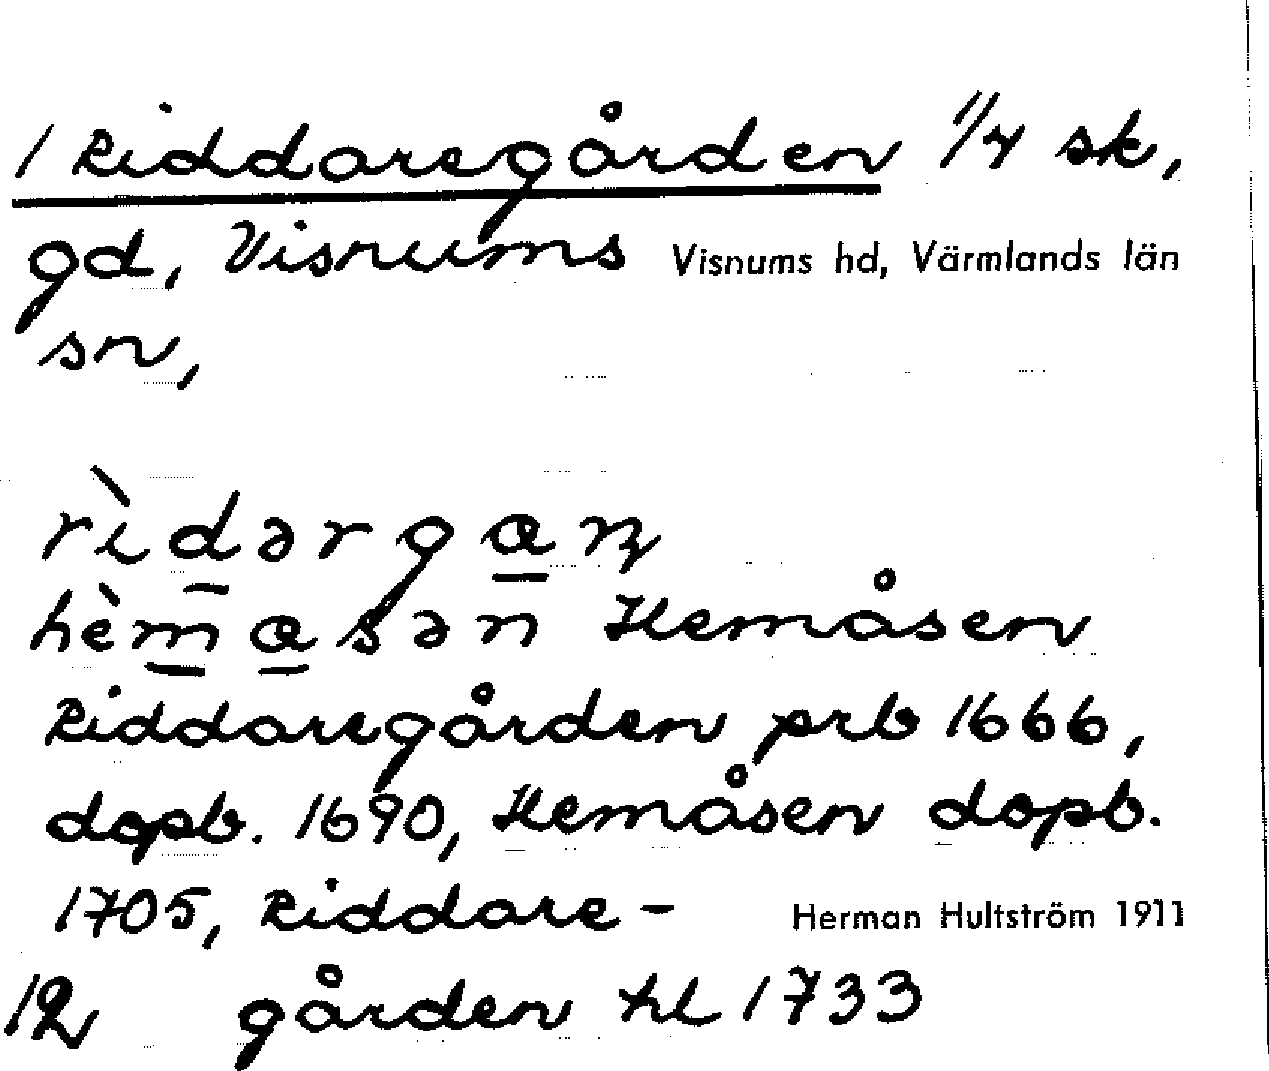 1 Riddaregården 1/4 sk,
gd, Visnums Visnums hd, Värmlands län
sn,
rìdərgan̥
hèmasən Hemåsen
Riddaregården prb 1666,
dopb. 1690, Hemåsen dopb.
1705, Riddare- Herman Hultström 1911
gården hl 1733